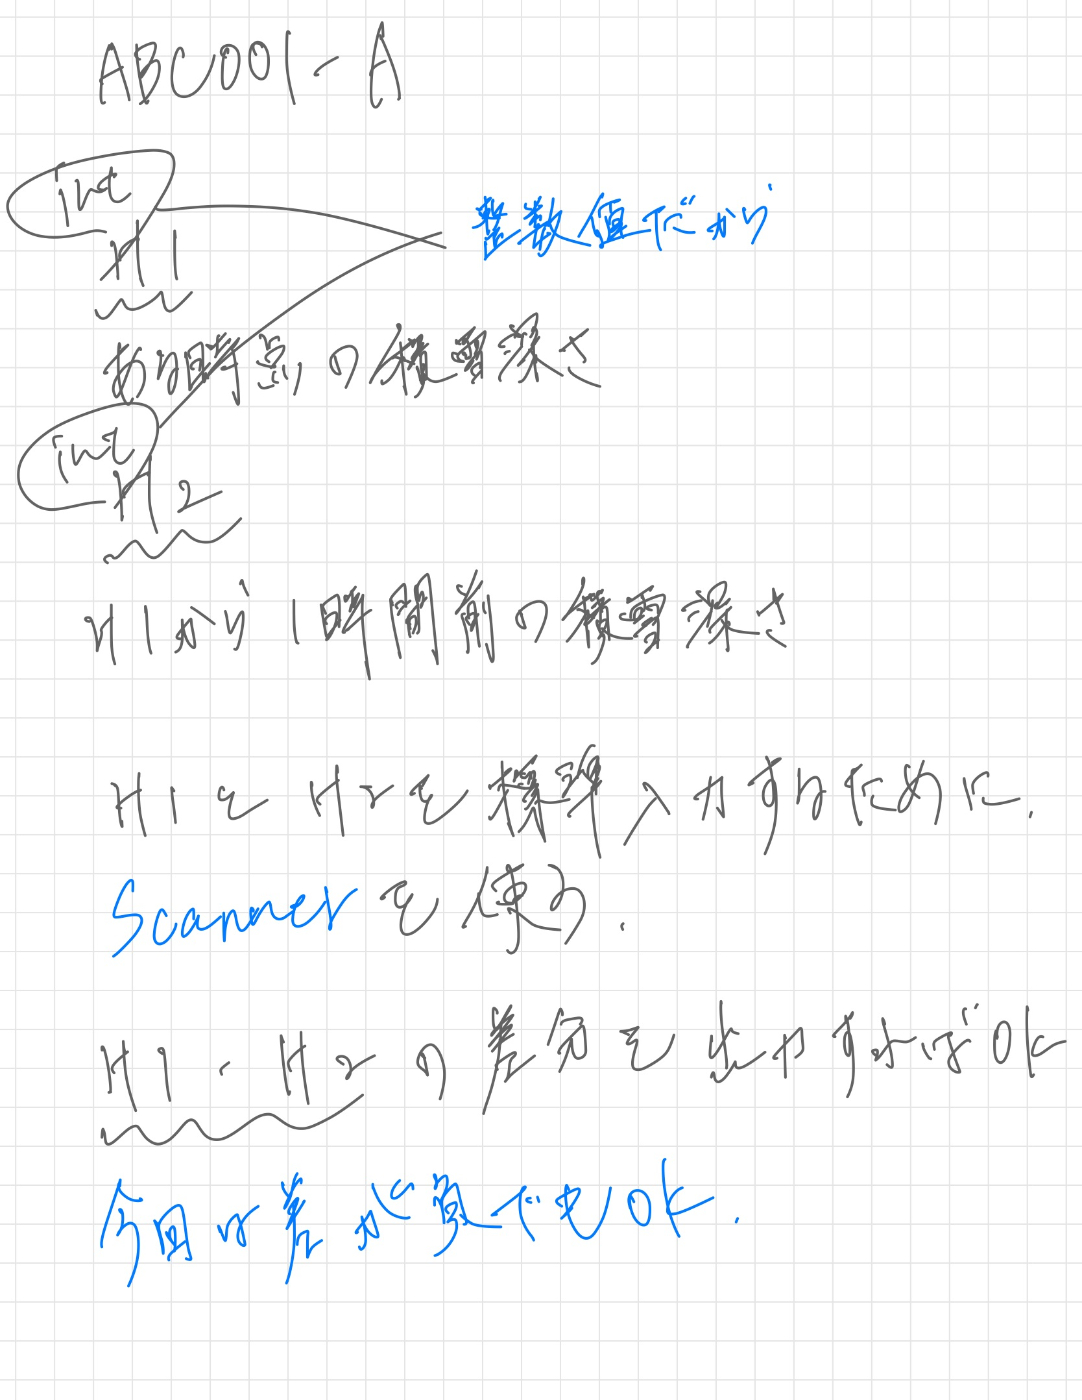 ABC001-A
int
H1
整数値だから
ある時点の積雪深さ
int
H2
H1から1時間前の積雪深さ
H1とH2を標準入力するために.
Scannerを使う.
H1-H2の差分を出力すればOK
今回は差が負でもOK.